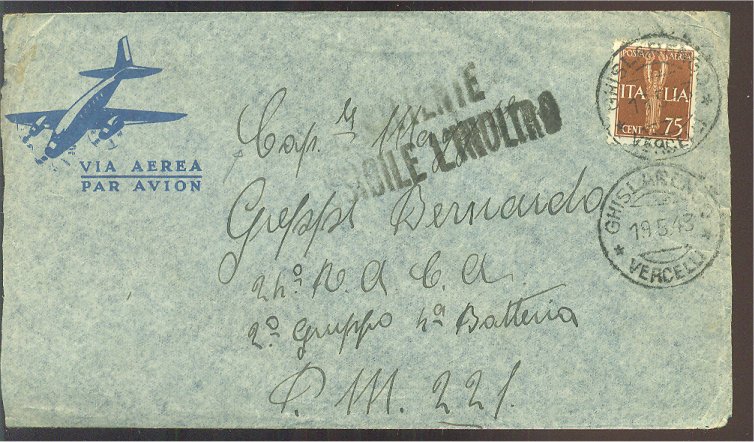 VIA AEREA
PAR AVION
POSTA AEREA
ITALIA
CENT. 75
GHISLARENGO
VERCELLI
GHISLARENGO
19.5.43
VERCELLI
L'INOLTRO
Cap. Magg.
Greppi Bernardo
24º R. A. C. A.
2º Gruppo 4ª Batteria
P. M. 221.